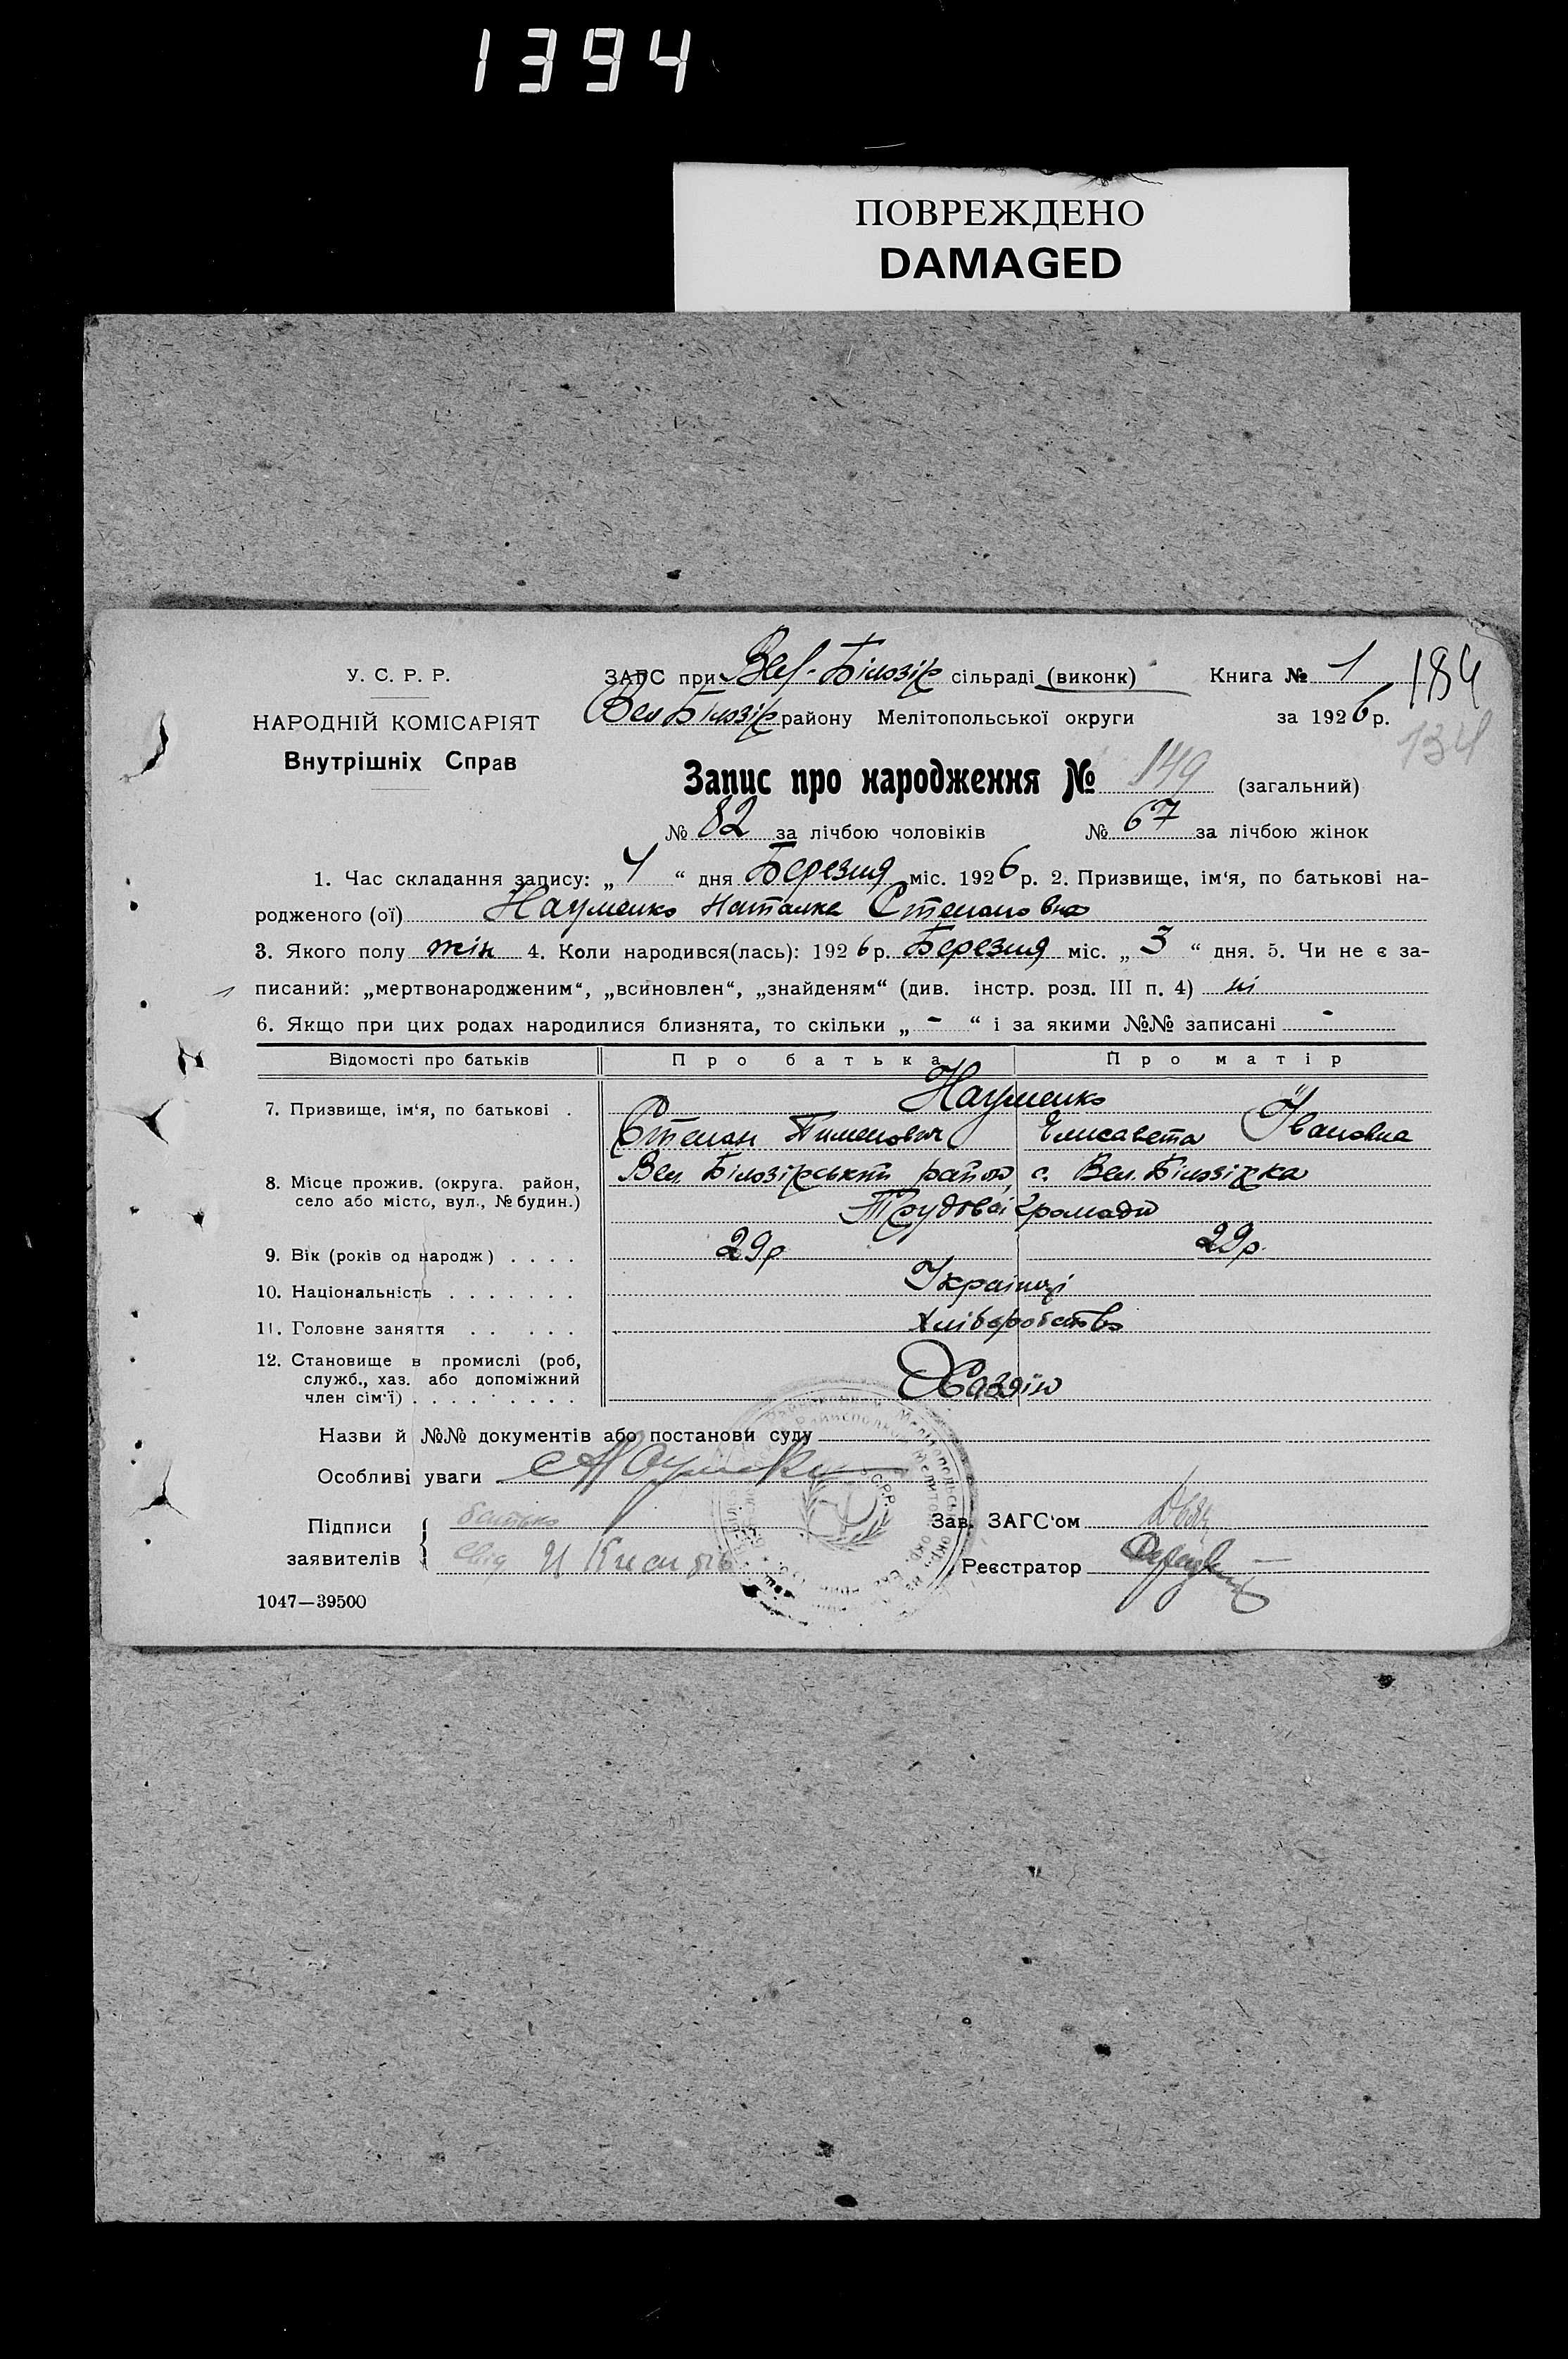 1394
ПОВРЕЖДЕНО
DAMAGED
У. С. Р. Р.
НАРОДНІЙ КОМІСАРІЯТ
Внутрішніх Справ
ЗАГС при Вел-Білозір сільраді (виконк) Книга № 1 184
Вел Білозір району Мелітопольської округи за 1926 р.
134
Запис про народження № 149 (загальний)
№ 82 за лічбою чоловіків № 67 за лічбою жінок
1. Час складання запису: „ 4 “ дня Березня міс. 1926 р. 2. Призвище, ім‘я, по батькові на-
родженого (ої) Науменко Наталка Степановна
3. Якого полу жін 4. Коли народився(лась): 1926 р. Березня міс. „ 3 “ дня. 5. Чи не є за-
писаний: „мертвонародженим“, „всиновлен“, „знайденям“ (див. інстр. розд. III п. 4) ні
6. Якщо при цих родах народилися близнята, то скільки „ - “ і за якими №№ записані -
Відомості про батьків Про батька Про матір
7. Призвище, ім‘я, по батькові . Науменко
Степан Пименович Елисавета Івановна
8. Місце прожив. (округа. район, село або місто, вул., № будин.) Вел. Білозірський район, с. Вел. Білозірка
Трудової громади
9. Вік (років од народж) . . . . 29 р 29 р.
10. Національність . . . . . . . Українці
11. Головне заняття . . . . . Хліборобство
12. Становище в промислі (роб, служб., хаз. або допоміжний член сім‘ї) . . . . . . . . Хазяїн
Назви й №№ документів або постанови суду
Особливі уваги
Підписи заявителів { батько
свід И
Зав. ЗАГС‘ом
Реєстратор
1047—39500